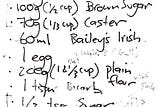 · 100g (1/2 cup) Brown Sugar
· 70g (1/3 cup) Caster
· 60ml Baileys Irish
· 1 egg
· 200g (1 1/3 cup) plain flour
· 1 tspn Bicarb
· 1/2 tspn Sugar